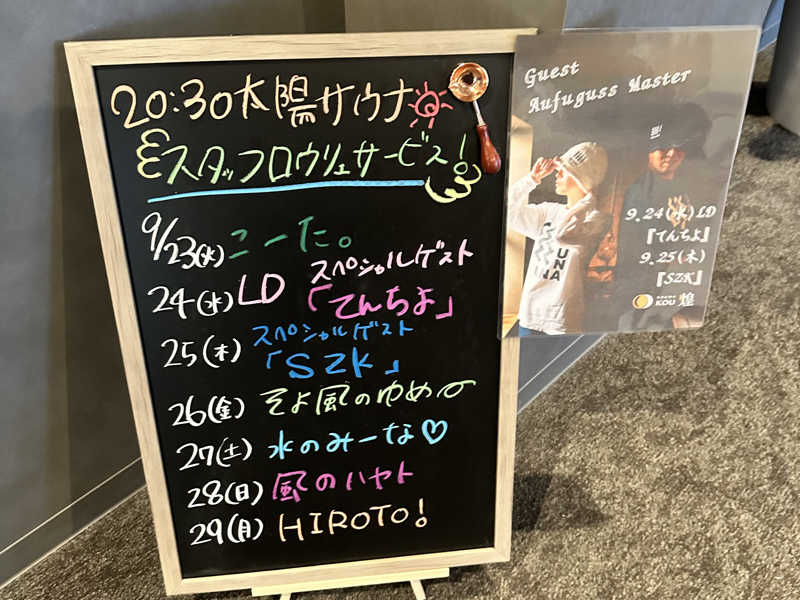 20:30太陽サウナ
スタッフロウリュサービス!
9/23(火)こーた。
スペシャルゲスト
24(水)LD「てんちよ」
スペシャルゲスト
25(木)「SZK」
26(金)そよ風のゆめの
27(土)水のみーな♡
28(日)風のハヤト
29(月)HIROTO!
Guest
Aufuguss Master
9.24(水)LD
『てんちよ』
9.25(木)
『SZK』
KOU 煌
UNA